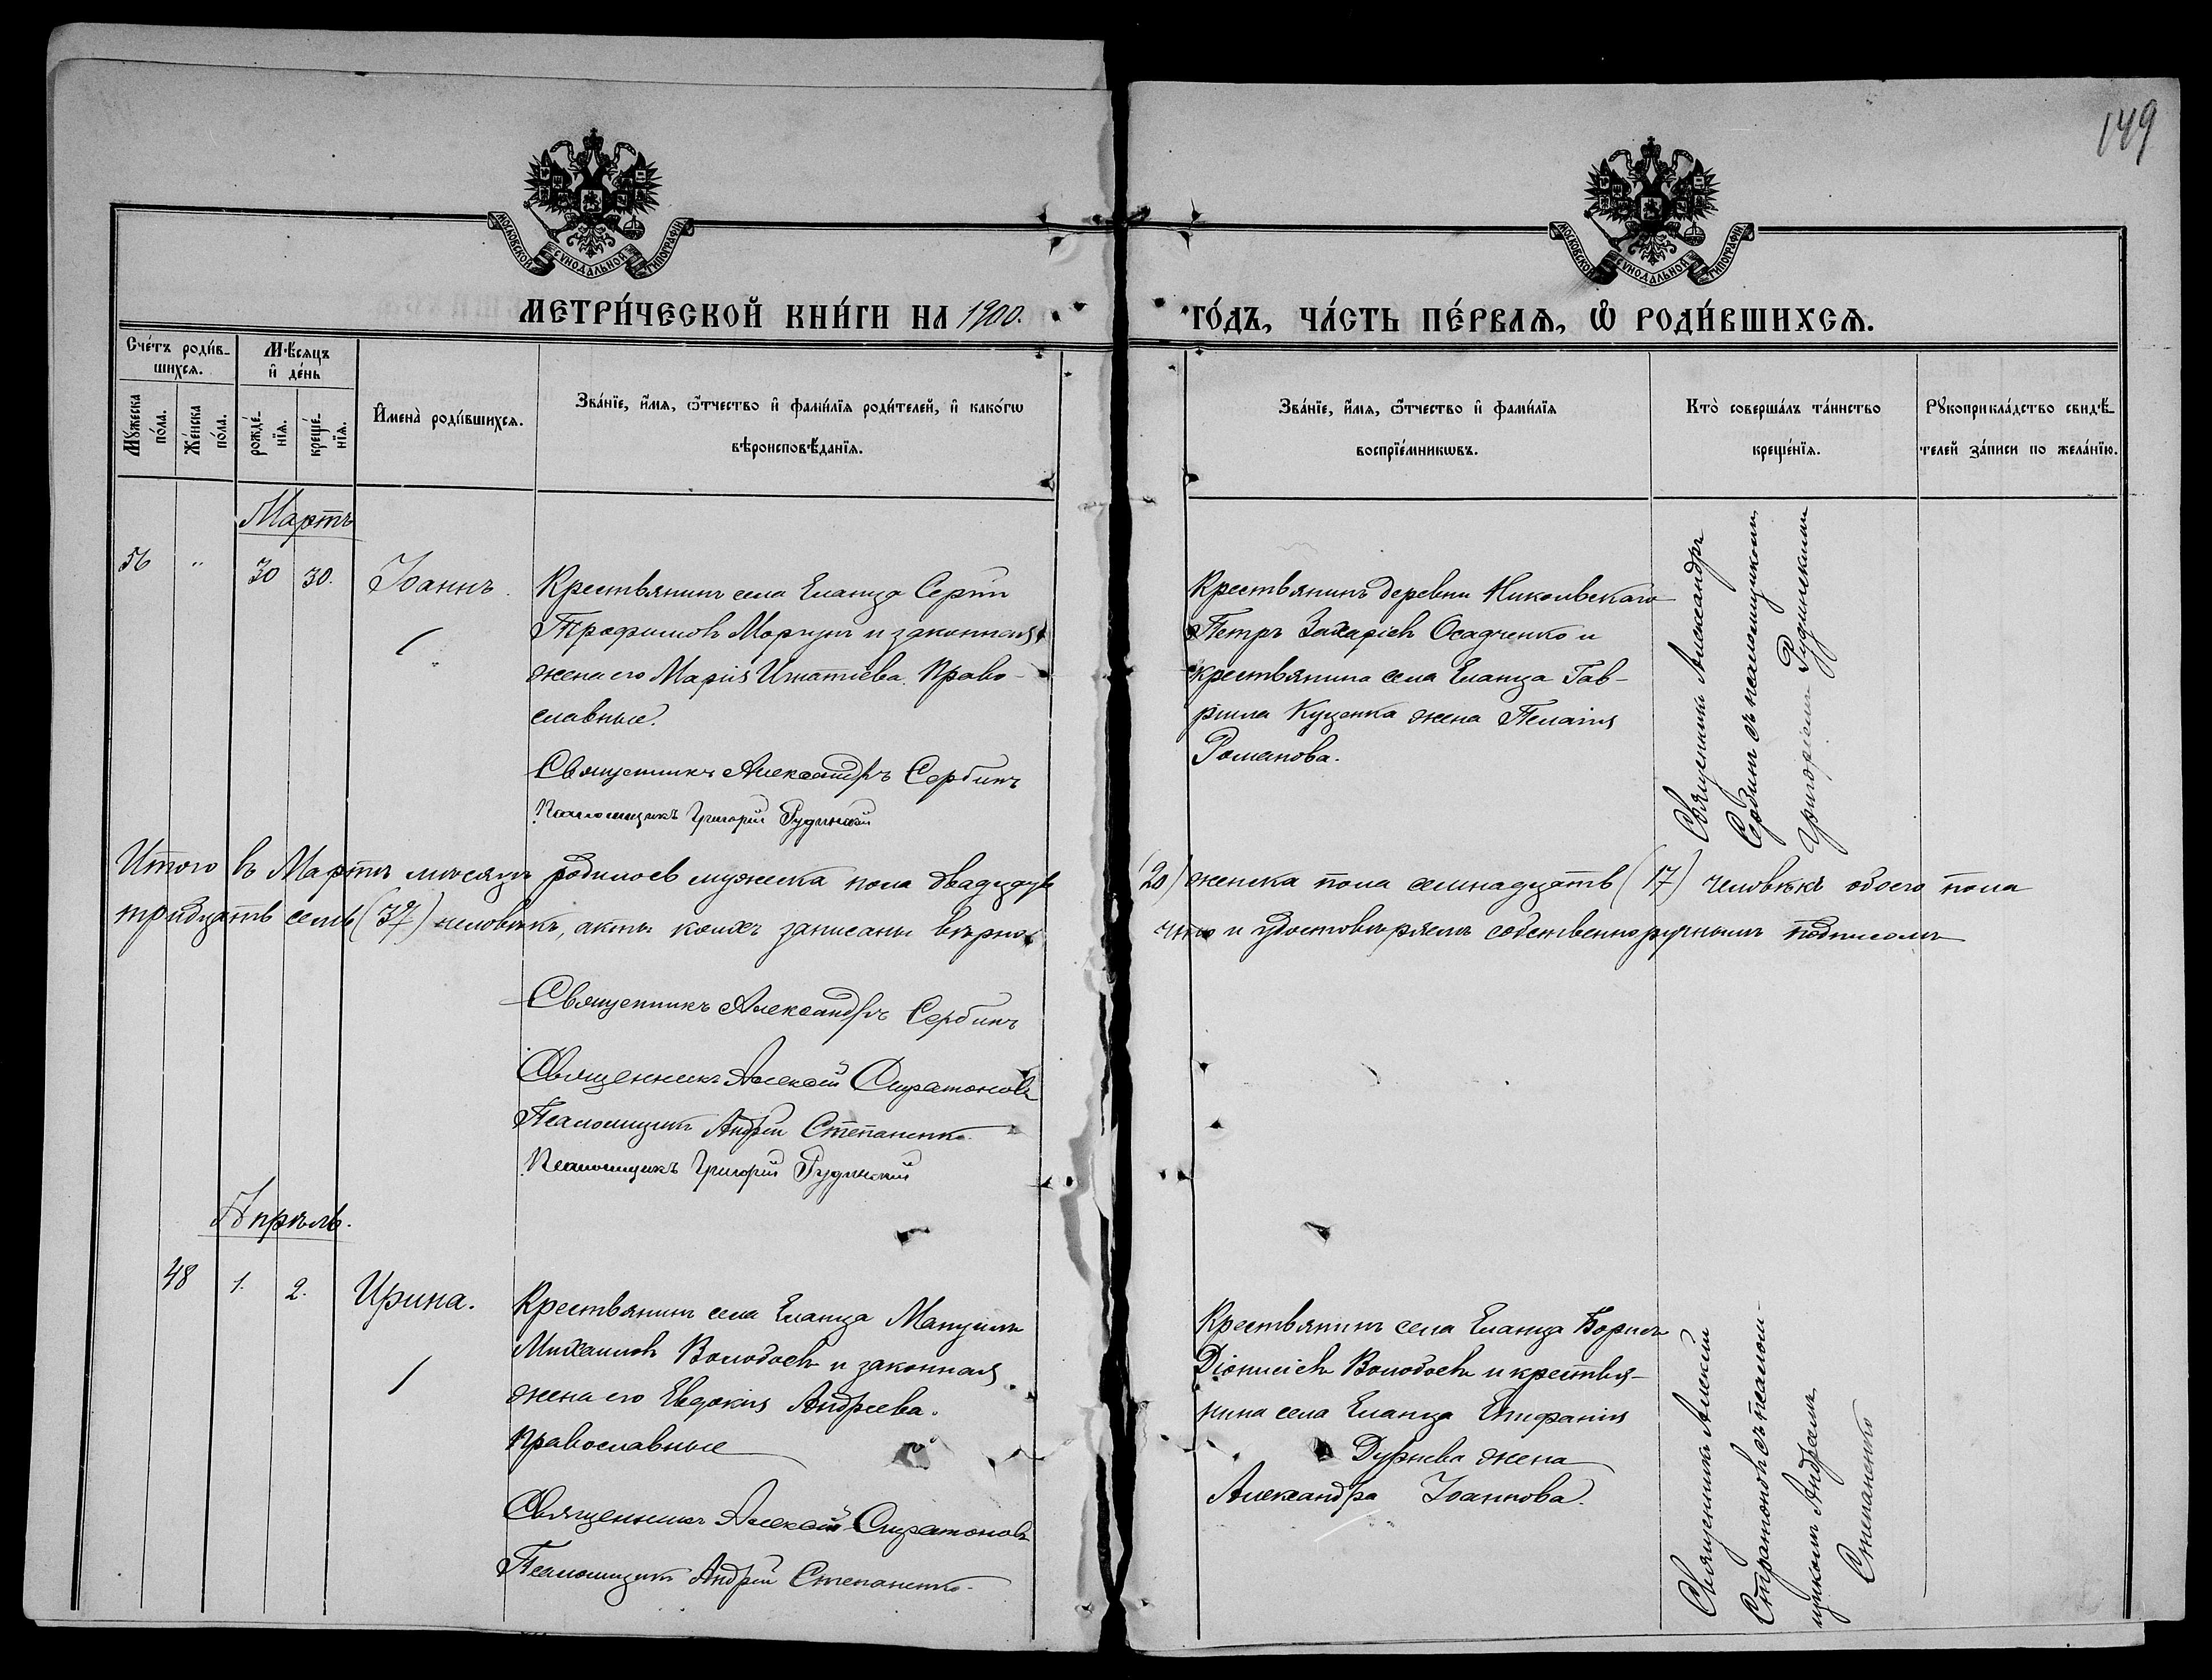 149
МОСКОВСКОЙ СѴНОДАЛЬНОЙ ТИПОГРАФІИ
МОСКОВСКОЙ СѴНОДАЛЬНОЙ ТИПОГРАФІИ
МЕТРИ́ЧЕСКОЙ КНИ́ГИ НА 1900.
ГО́ДЪ, ЧА́СТЬ ПЕ́РВАѦ, Ѡ҆ РОДИ́ВШИХСѦ.
Сче́тъ роди́в-
шихсѧ.
Мѣ́сѧцъ
и҆ де́нь
Мꙋ́жеска
по́ла.
Же́нска
по́ла.
рожде́-
нїѧ.
креще́-
нїѧ.
И҆мена̀ роди́вшихсѧ.
Зва́нїе, и҆́мѧ, ѻ҆́тчество и҆ фамилїѧ роди́телей, и҆ како́гѡ
вѣроисповѣ́данїѧ.
Зва́нїе, и҆́мѧ, ѻ҆́тчество и҆ фами́лїѧ
воспрїе́мникѡвъ.
Кто̀ соверша́лъ та́инство
креще́нїѧ.
Рꙋкоприкла́дство свидѣ́-
телей за́писи по жела́нїю.
Мартъ
56 " 30 30. Іоаннъ.
Крестьянинъ села Еланца Сергій
Трофимовъ Моргунъ и законная
жена его Марія Игнатіева. Право-
славные.
Священникъ Александръ Сербинъ
Псаломщикъ Григорій Рудинскій
Крестьянинъ деревни Николвскаго
Петръ Захаріевъ Осадченко и
крестьянина села Еланца Гав-
рiила Куценка жена Пелагія
Романова.
Священникъ Александръ
Сербинъ съ псаломщикомъ
Григоріемъ Рудинскимъ
Итого въ Мартѣ мѣсяцѣ родилось мужеска пола двадцать (20) женска пола семнадцать (17) человѣкъ обоего пола
тридцать семь (37) человѣкъ, акты коихъ записаны вѣрно что и удостовѣряемъ собственноручнымъ подписомъ
Священникъ Александръ Сербинъ
Священникъ Алексій Стратоновъ
Псаломщикъ Андрей Степаненко
Псаломщикъ Григорій Рудинскій
Апрѣль.
48 1. 2. Ирина.
Крестьянинъ села Еланца Мануилъ
Михаиловъ Волобоевъ и законная
жена его Евдокія Андреева.
Православные
Священникъ Алексій Стратоновъ
Псаломщикъ Андрей Степаненко
Крестьянинъ села Еланца Борисъ
Діонисіевъ Волобоевъ и крестья-
нина села Еланца Епифанія
Дурнева жена
Александра Іоаннова.
Священникъ Алексій
Стратоновъ съ псалом-
щикомъ Андреемъ
Степаненко